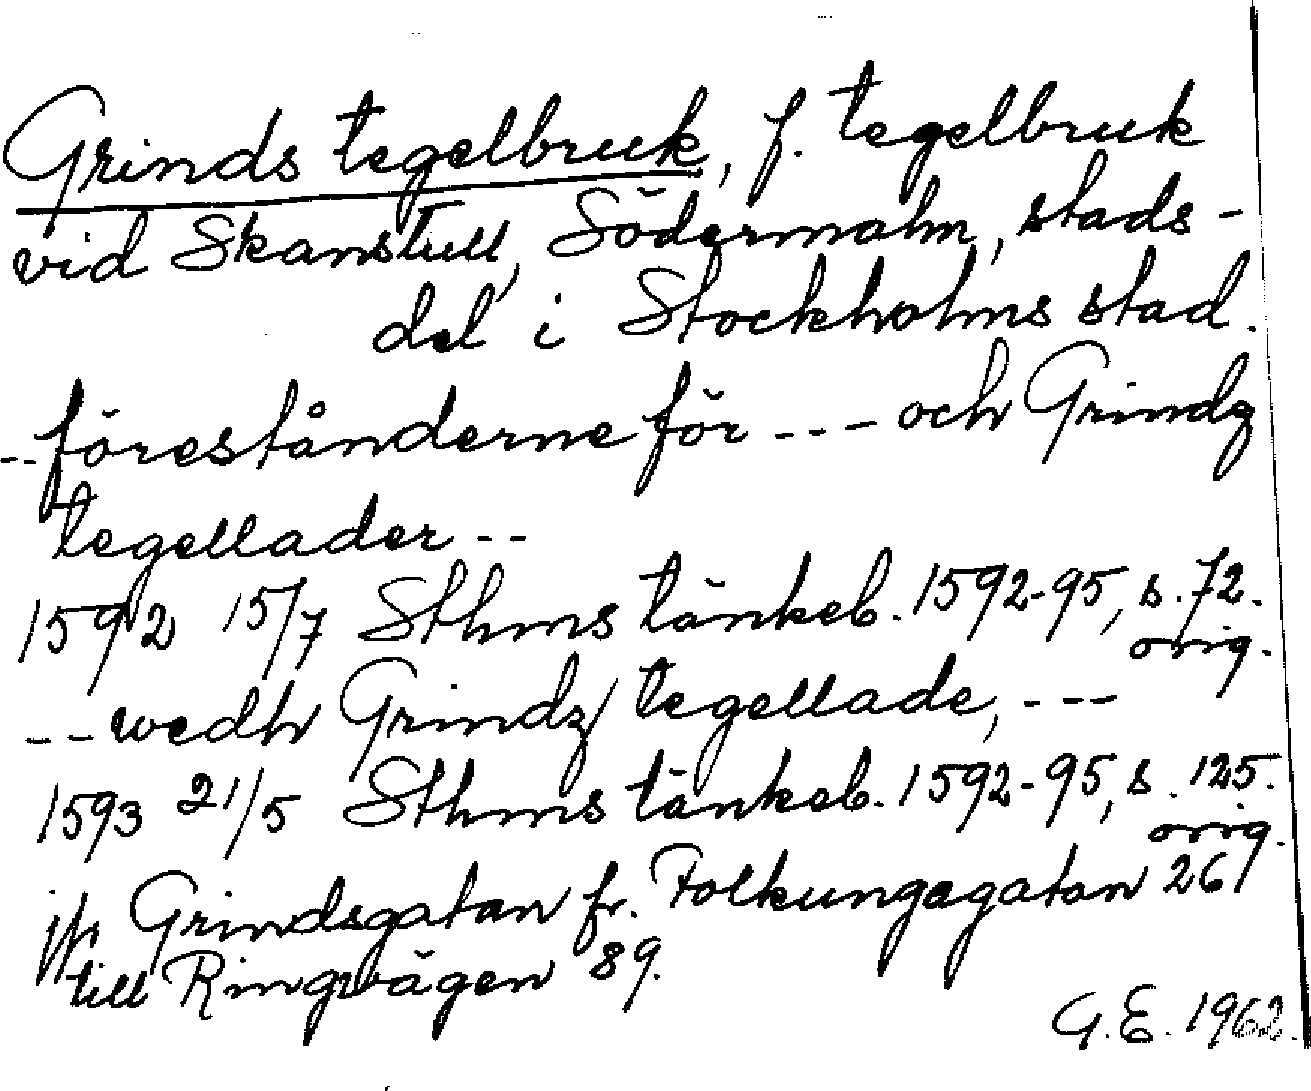 Grinds tegelbruk, f. tegelbruk
vid Skanstull, Södermalm, stads-
del i Stockholms stad.
--förestånderne för --- och Grindz
tegellader --
1592 15/7 Sthms tänkeb. 1592-95, s. 72.
orig.
-- wedh Grindz tegellade, ---
1593 21/5 Sthms tänkeb. 1592-95, s. 125.
orig.
jfr Grindsgatan fr. Folkungagatan 26
till Ringvägen 89.
G.E. 1962.